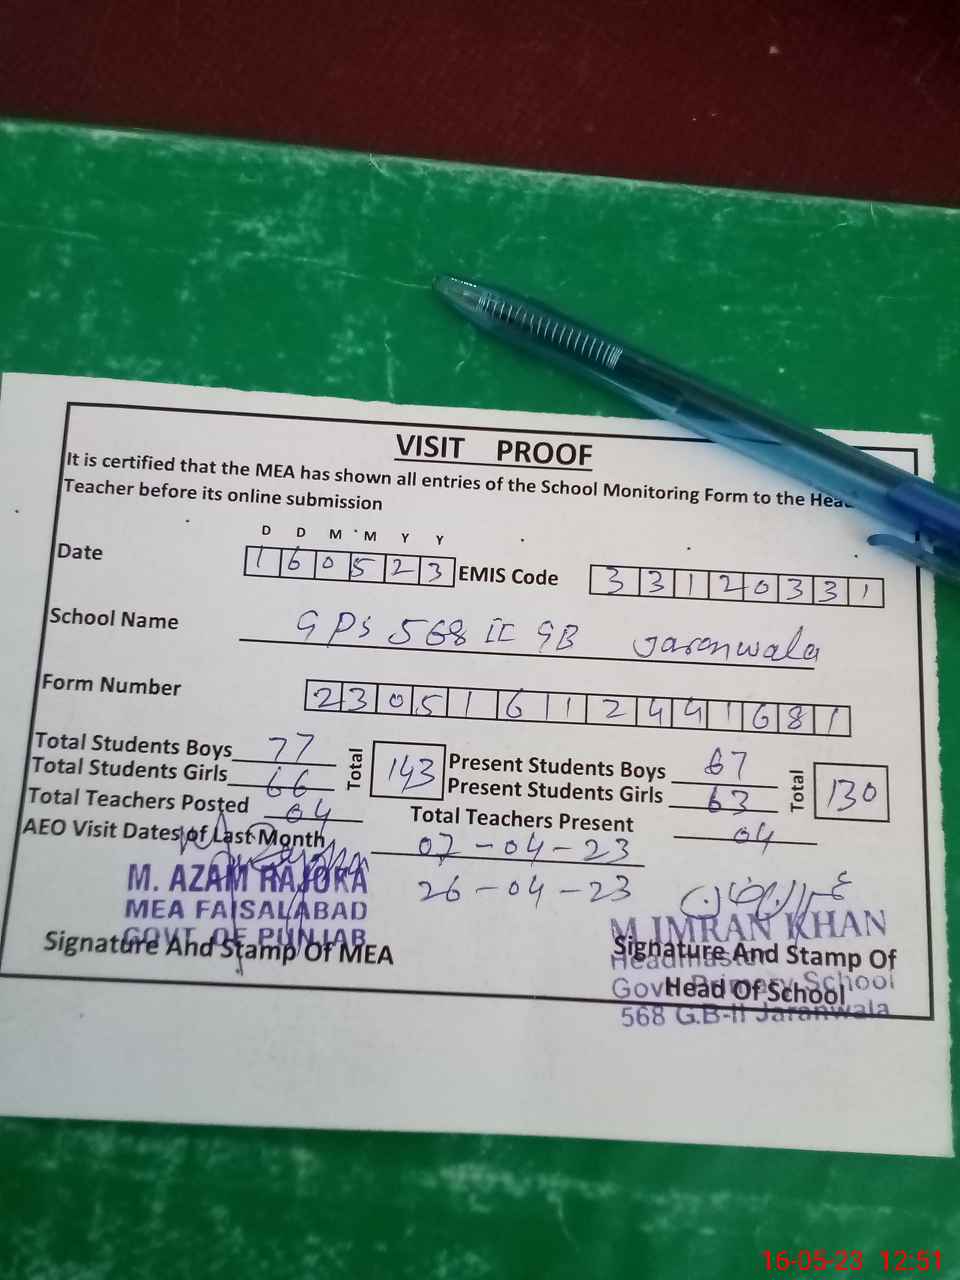 VISIT PROOF
It is certified that the MEA has shown all entries of the School Monitoring Form to the Hea
Teacher before its online submission
D D M M Y Y
Date 1 6 0 5 2 3 EMIS Code 3 3 1 2 0 3 3 1
School Name GPS 568 II GB Jaranwala
Form Number 2 3 0 5 1 6 1 1 2 4 4 1 6 8 1
Total Students Boys 77 Total 143 Present Students Boys 67 Total 130
Total Students Girls 66 Present Students Girls 63
Total Teachers Posted 04 Total Teachers Present 04
AEO Visit Dates of Last Month 07-04-23
26-04-23
M. AZAM RAJOKA
MEA FAISALABAD
GOVT. OF PUNJAB
Signature And Stamp Of MEA
M.IMRAN KHAN
Signature And Stamp Of
Headmaster
Govt. Primary School
Head Of School
568 G.B-II Jaranwala
16-05-23 12:51